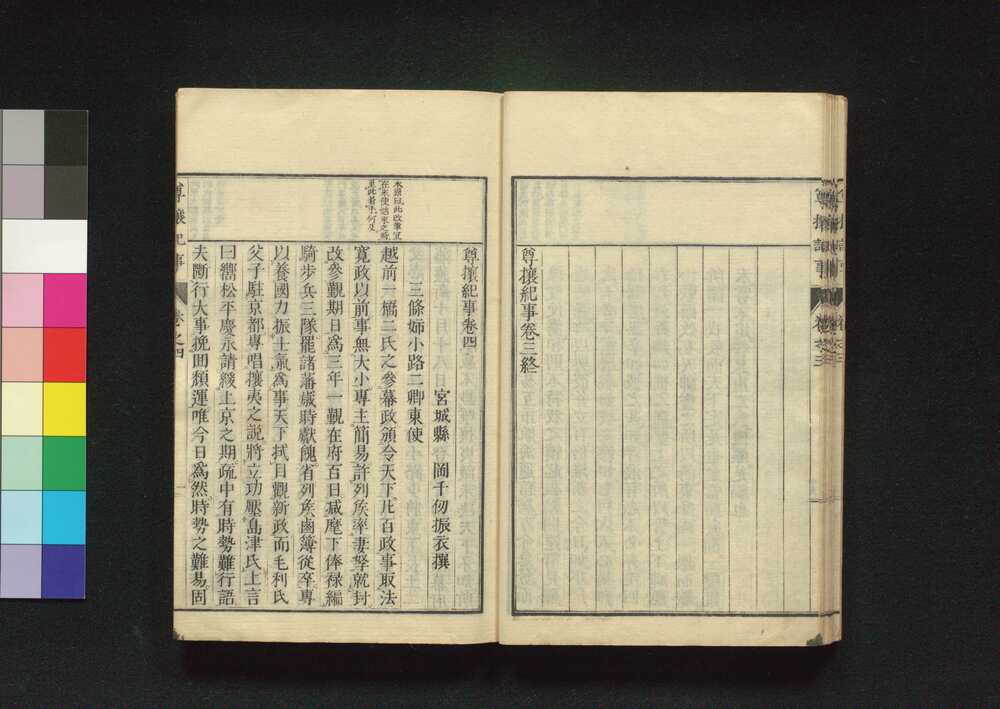 尊攘紀事卷三終
尊攘紀事卷四
宮城縣 岡千仞振衣撰
三條姉小路二卿東使
越前一橋二氏之參幕政頒令天下凡百政事取法
寬政以前事無大小專主簡易許列矦率妻孥就封
改參覲期日爲三年一覲在府百日減麾下俸祿編
騎步兵三隊罷諸藩歲時獻餽省列矦鹵簿從卒專
以養國力振士氣爲事天下拭目觀新政而毛利氏
父子駐京都專唱攘夷之說將立功壓島津氏上言
曰嚮松平慶永請緩上京之期疏中有時勢難行語
夫斷行大事挽囘頽運唯今日爲然時勢之難易固
尊攘紀事
卷之四